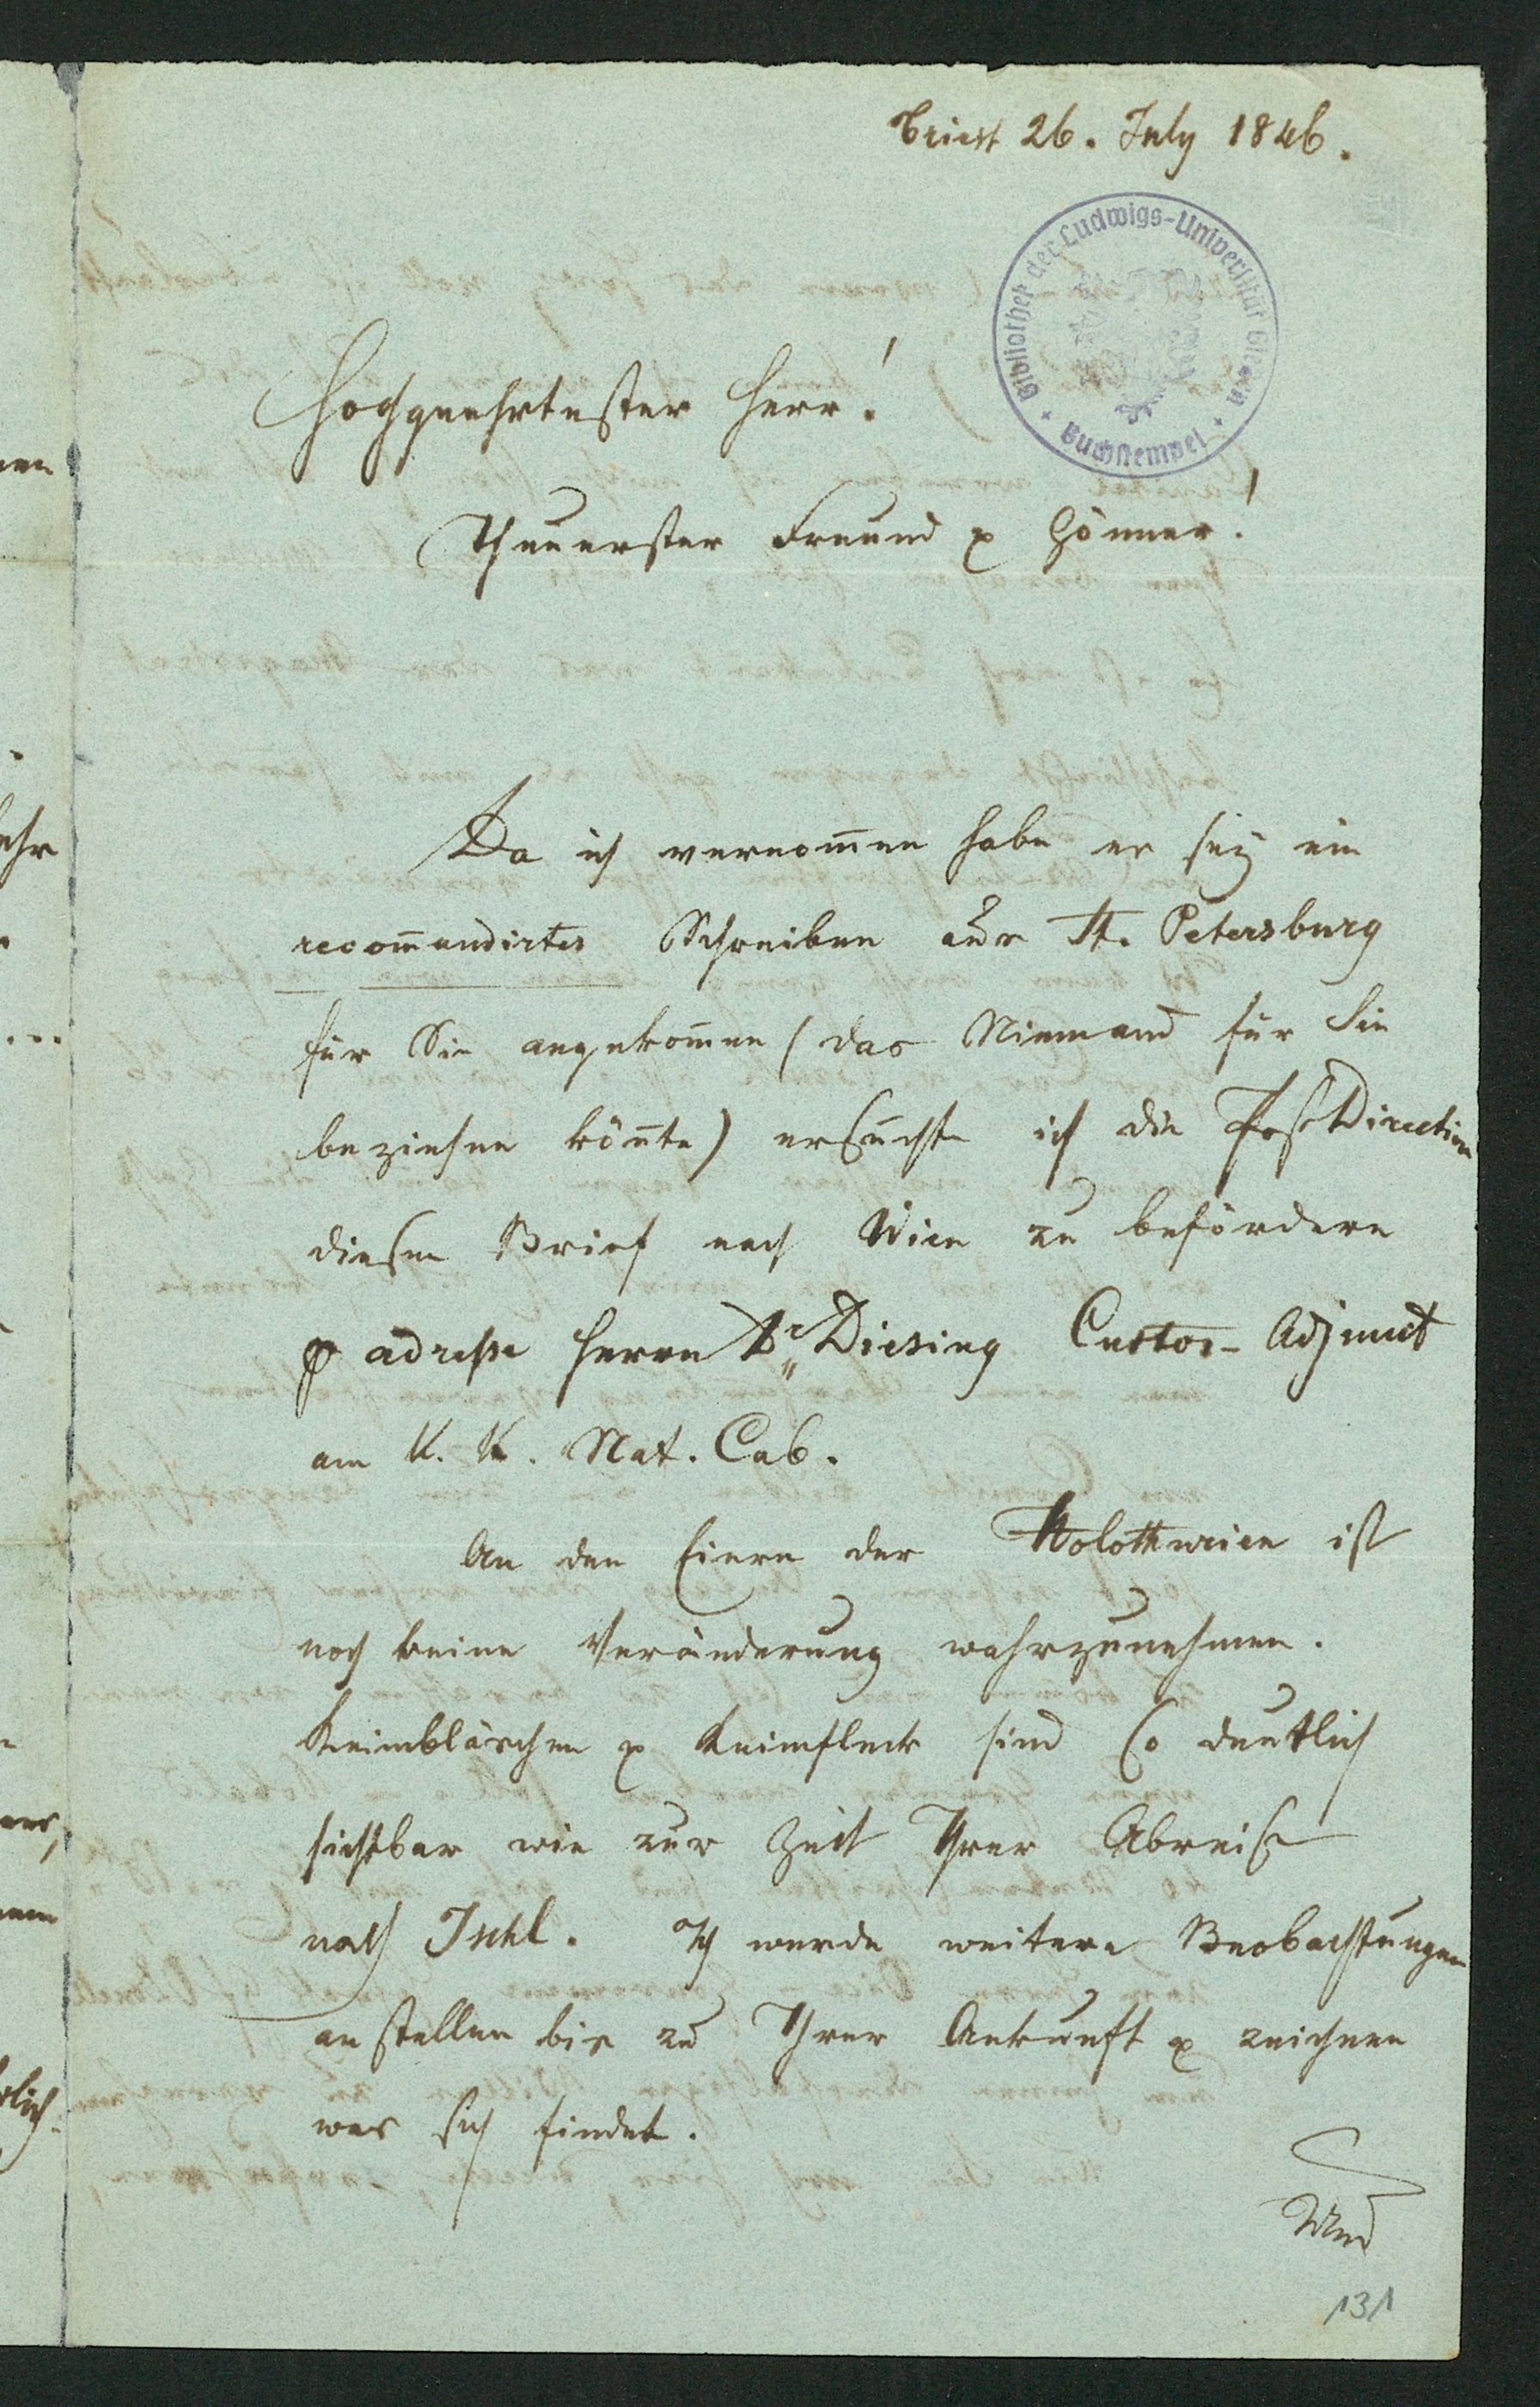 Triest 26. July 1846.
Bibliothek der Ludwigs-Universität Gießen
Buchstempel
Hochgeehrtester Herr!
Theuerster Freund & Gönner!
Da ich vernom̄en habe es sey ein
recom̄andirtes Schreiben aus St. Petersburg
für Sie angekom̄en (das Niemand für Sie
beziehen kön̄te) ersuchte ich die Post Direction
diesen Brief nach Wien zu befördern
p adresse Herrn Dr Diesing Custos-Adjunct
am K. K. Nat. Cab.
An den Eiern der Holothurien ist
noch keine Veränderung wahrzunehmen.
Keimbläschen & Keimfleck sind so deutlich
sichtbar wie zur Zeit Ihrer Abreise
nach Ischl. Ich werde weitere Beobachtungen
anstellen bis zu Ihrer Ankunft & zeichnen
was sich findet.
Und
131